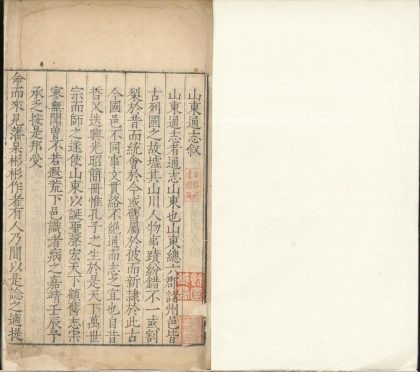 山東通志叙
山東通志者通志山東也山東總六郡諸州邑皆
古列國之故墟其山川人物事蹟紛錯不一或割
裂於昔而統會於今或舊屬於彼而新隸於此古
今國邑不同事文貫絡不絕通而志之宜也自昔
哲乂迭興光昭簡冊惟孔子之生於是天下萬世
宗而師之遂使山東以誕聖聲宏天下顧舊志宗
寥無聞曾不若遐荒下邑識者病之嘉靖壬辰予
承乏按是邦爰
命而來見藩臬彬彬作者有人乃間以是諗之適提